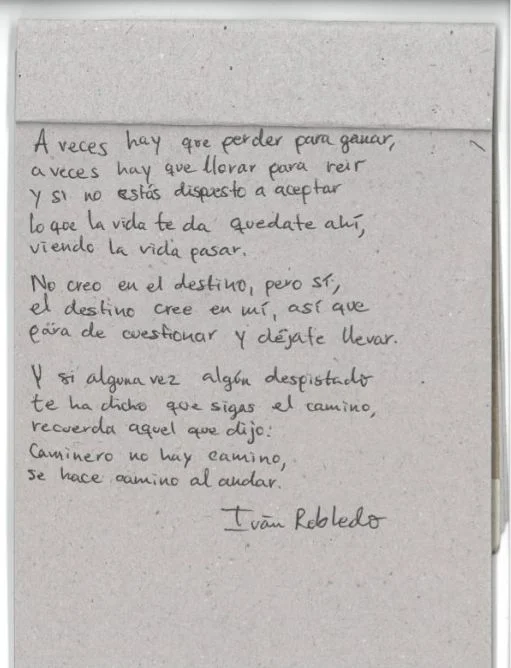 A veces hay que perder para ganar,
a veces hay que llorar para reir
y si no estás dispuesto a aceptar
lo que la vida te da quedate ahí,
viendo la vida pasar.
No creo en el destino, pero sí,
el destino cree en mí, así que
para de cuestionar y déjate llevar.
Y si alguna vez algún despistado
te ha dicho que sigas el camino,
recuerda aquel que dijo:
Caminero no hay camino,
se hace camino al andar.
Iván Robledo